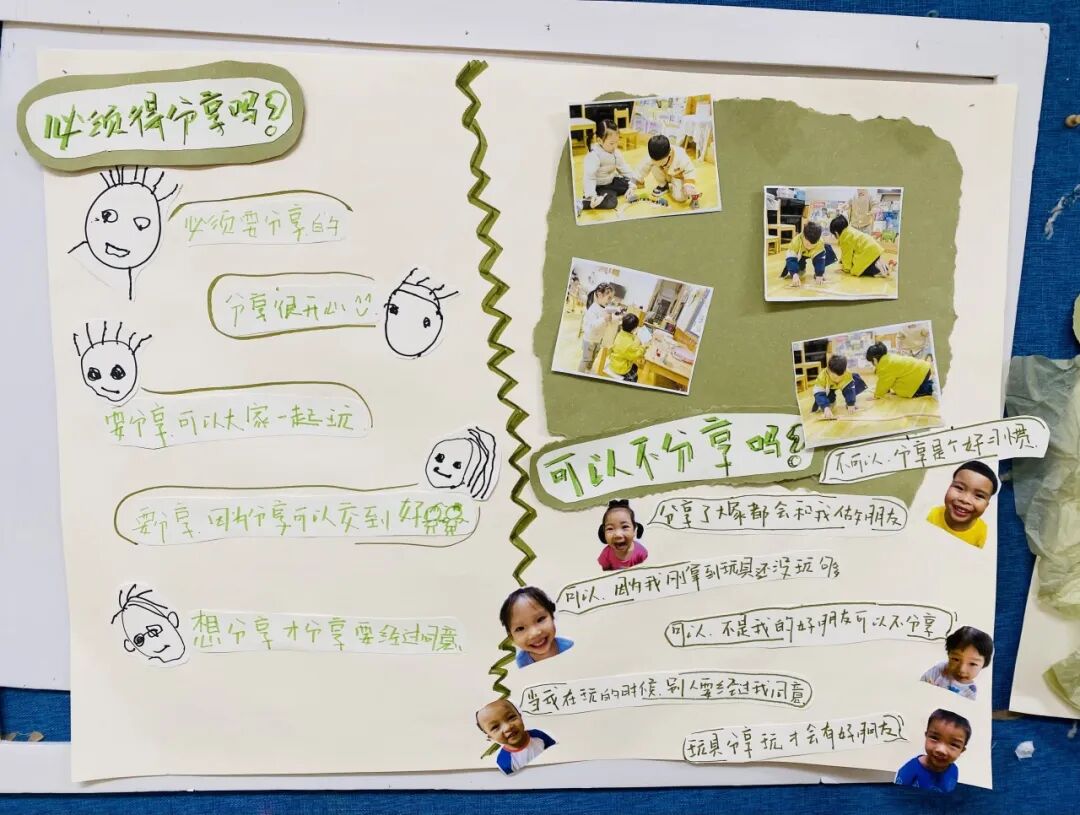 必须得分享吗?
必须要分享的
分享很开心
要分享,可以大家一起玩
要分享,因为分享可以交到好朋友
想分享才分享要经过同意
可以不分享吗?
不可以,分享是个好习惯.
分享了大家都会和我做朋友
可以,因为我刚拿到玩具还没玩够
可以,不是我的好朋友可以不分享
当我在玩的时候,别人要经过我同意
玩具分享玩才会有好朋友